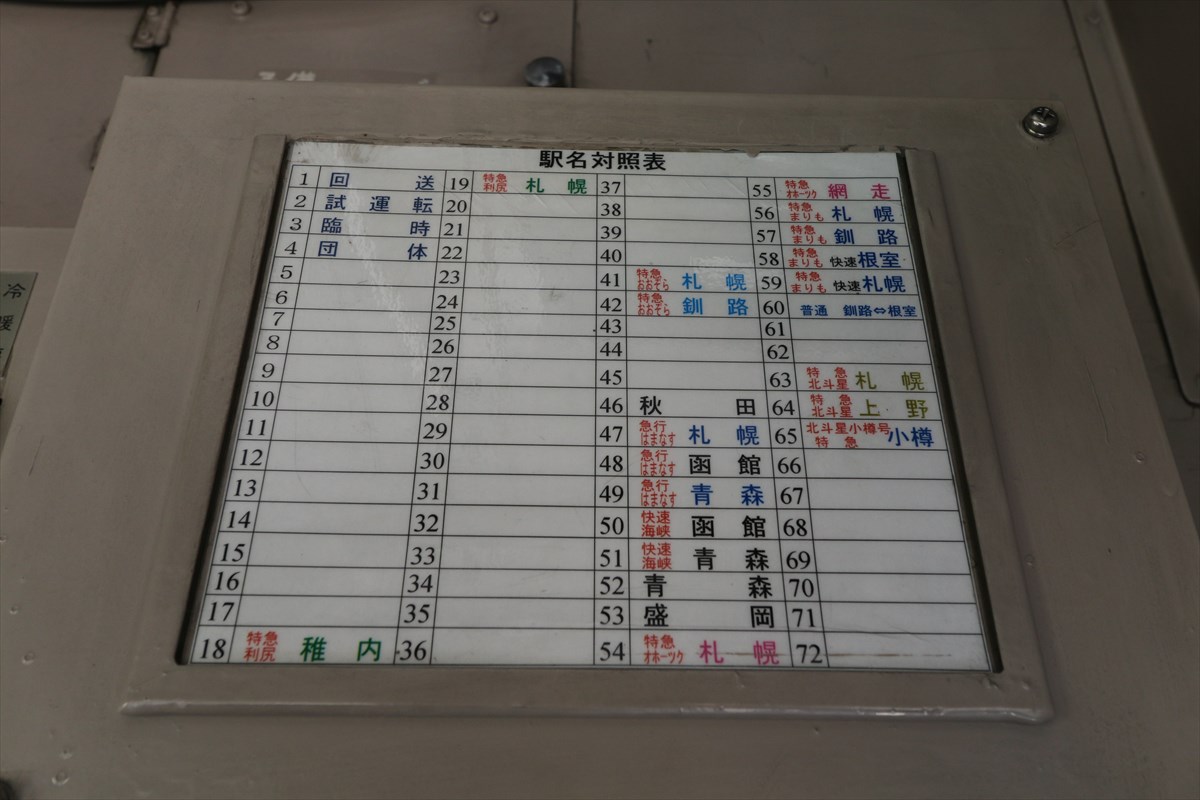 予備
冷
暖
駅名対照表
1 回送 19 特急利尻 札幌 37 55 特急オホーツク 網走
2 試運転 20 38 56 特急まりも 札幌
3 臨時 21 39 57 特急まりも 釧路
4 団体 22 40 58 特急まりも 快速根室
5 23 41 特急おおぞら 札幌 59 特急まりも 快速札幌
6 24 42 特急おおぞら 釧路 60 普通 釧路⇔根室
7 25 43 61
8 26 44 62
9 27 45 63 特急北斗星 札幌
10 28 46 秋田 64 特急北斗星 上野
11 29 47 急行はまなす 札幌 65 北斗星小樽号特急 小樽
12 30 48 急行はまなす 函館 66
13 31 49 急行はまなす 青森 67
14 32 50 快速海峡 函館 68
15 33 51 快速海峡 青森 69
16 34 52 青森 70
17 35 53 盛岡 71
18 特急利尻 稚内 36 54 特急オホーツク 札幌 72